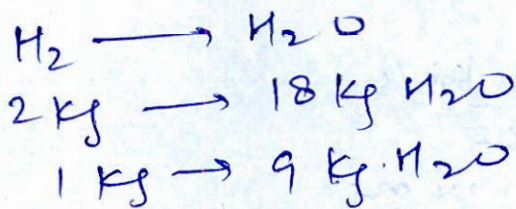 H₂ ⟶ H₂O
2 Kg ⟶ 18 Kg H₂O
1 Kg → 9 Kg. H₂O